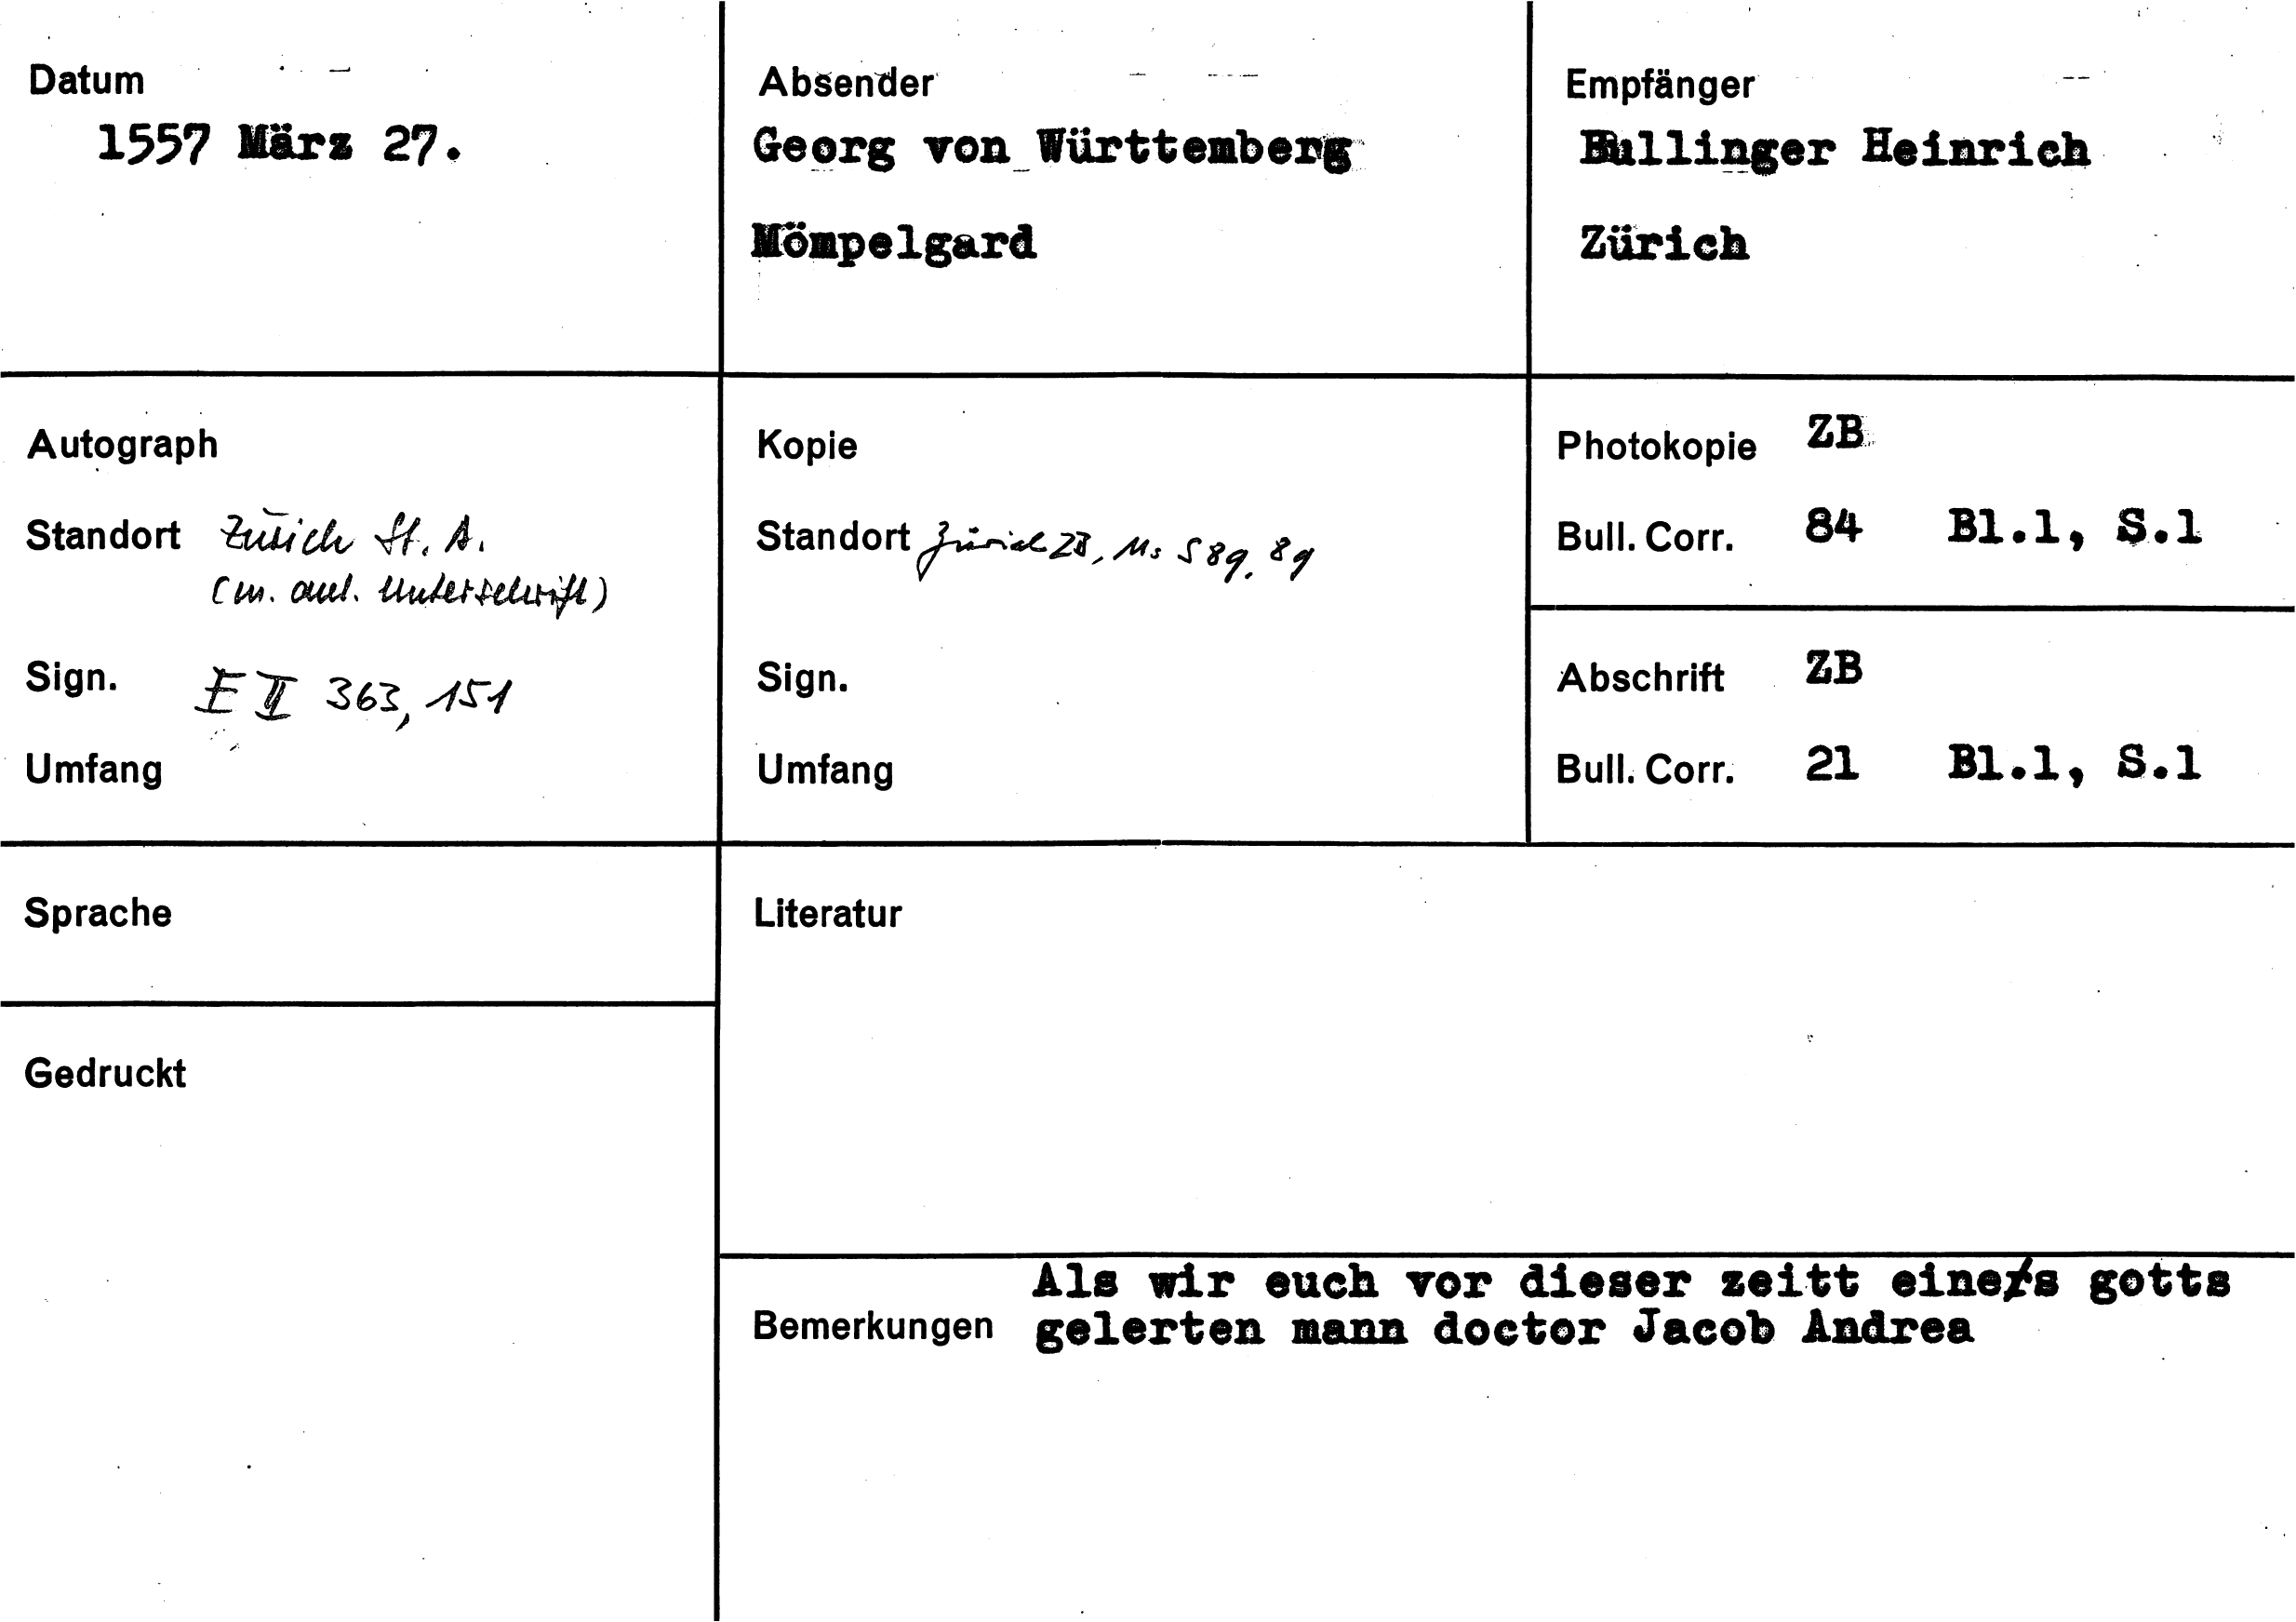 Datum
1557 März 27.
Absender
Georg von Württemberg
Mömpelgard
Empfänger
Bullinger Heinrich
Zürich
Autograph
Standort Zürich St. A.
(m. aut. Unterschrift)
Sign. E II 363, 151
Umfang
Kopie
Standort Zürich ZB, Ms S 89, 89
Sign.
Umfang
Photokopie ZB
Bull. Corr. 84 Bl.1, S.1
Abschrift ZB
Bull. Corr. 21 Bl.1, S.1
Sprache
Gedruckt
Literatur
Bemerkungen Als wir euch vor dieser zeitt eines gotts
gelerten mann doctor Jacob Andrea